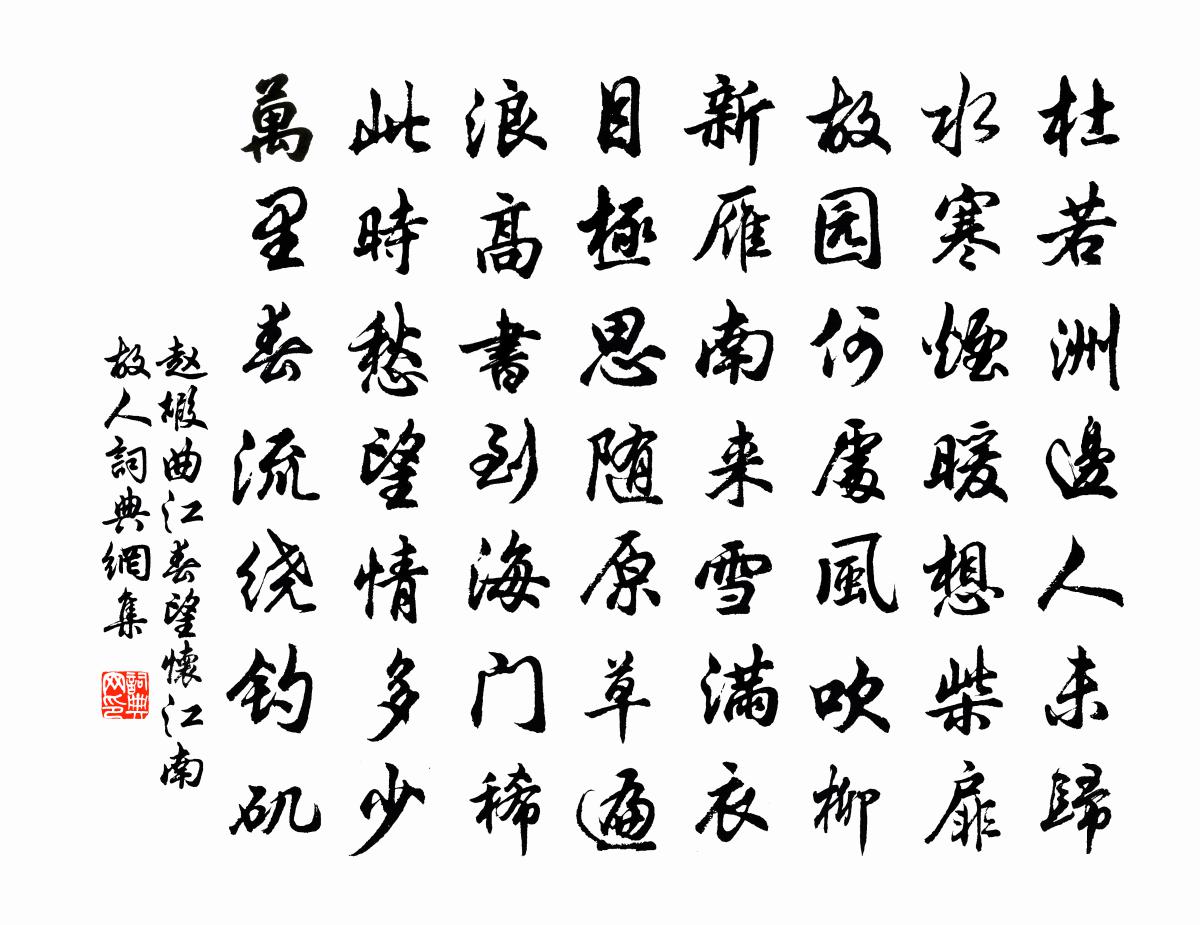 杜若洲邊人未歸
水寒煙暖想柴扉
故园何處風吹柳
新雁南来雪滿衣
目極思随原草遍
浪高書到海门稀
此時愁望情多少
萬里春流绕钓矶
赵嘏曲江春望懷江南
故人詞典網集
詞典网印